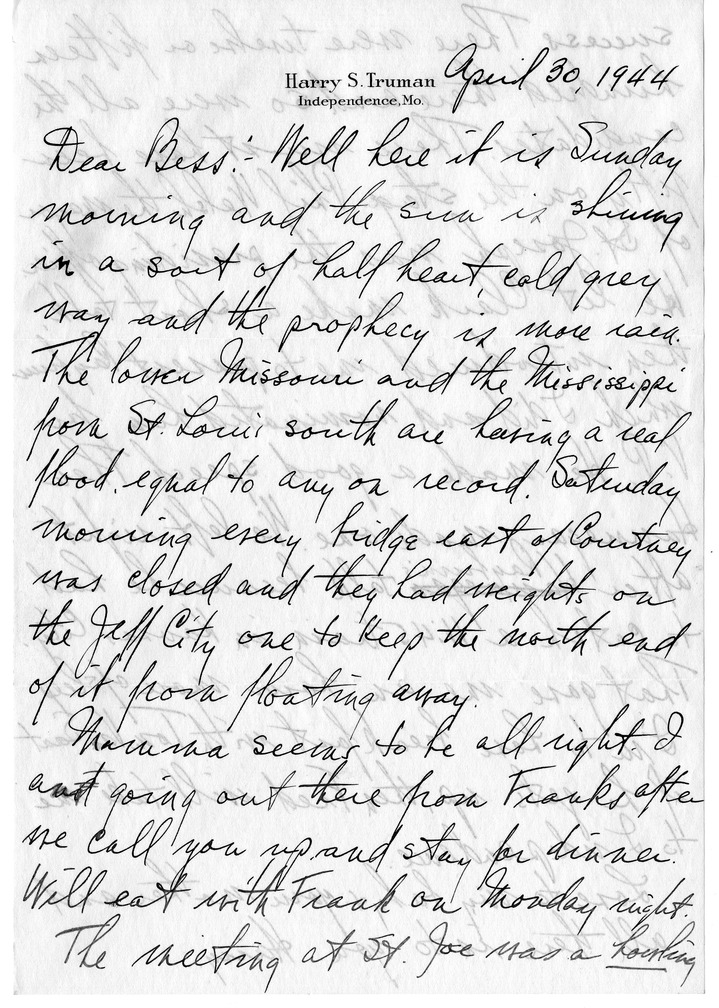 Harry S. Truman
Independence, Mo.
April 30, 1944
Dear Bess:- Well here it is Sunday
morning and the sun is shining
in a sort of half heart, cold grey
way and the prophecy is more rain.
The lower Missouri and the Mississippi
from St. Louis south are having a real
flood, equal to any on record. Saturday
morning every bridge east of Courtney
was closed and they had weights on
the Jeff City one to keep the north end
of it from floating away.
Mamma seems to be all right. I
am going out there from Franks after
we call you up and stay for dinner.
Will eat with Frank on Monday night.
The meeting at St. Joe was a howling